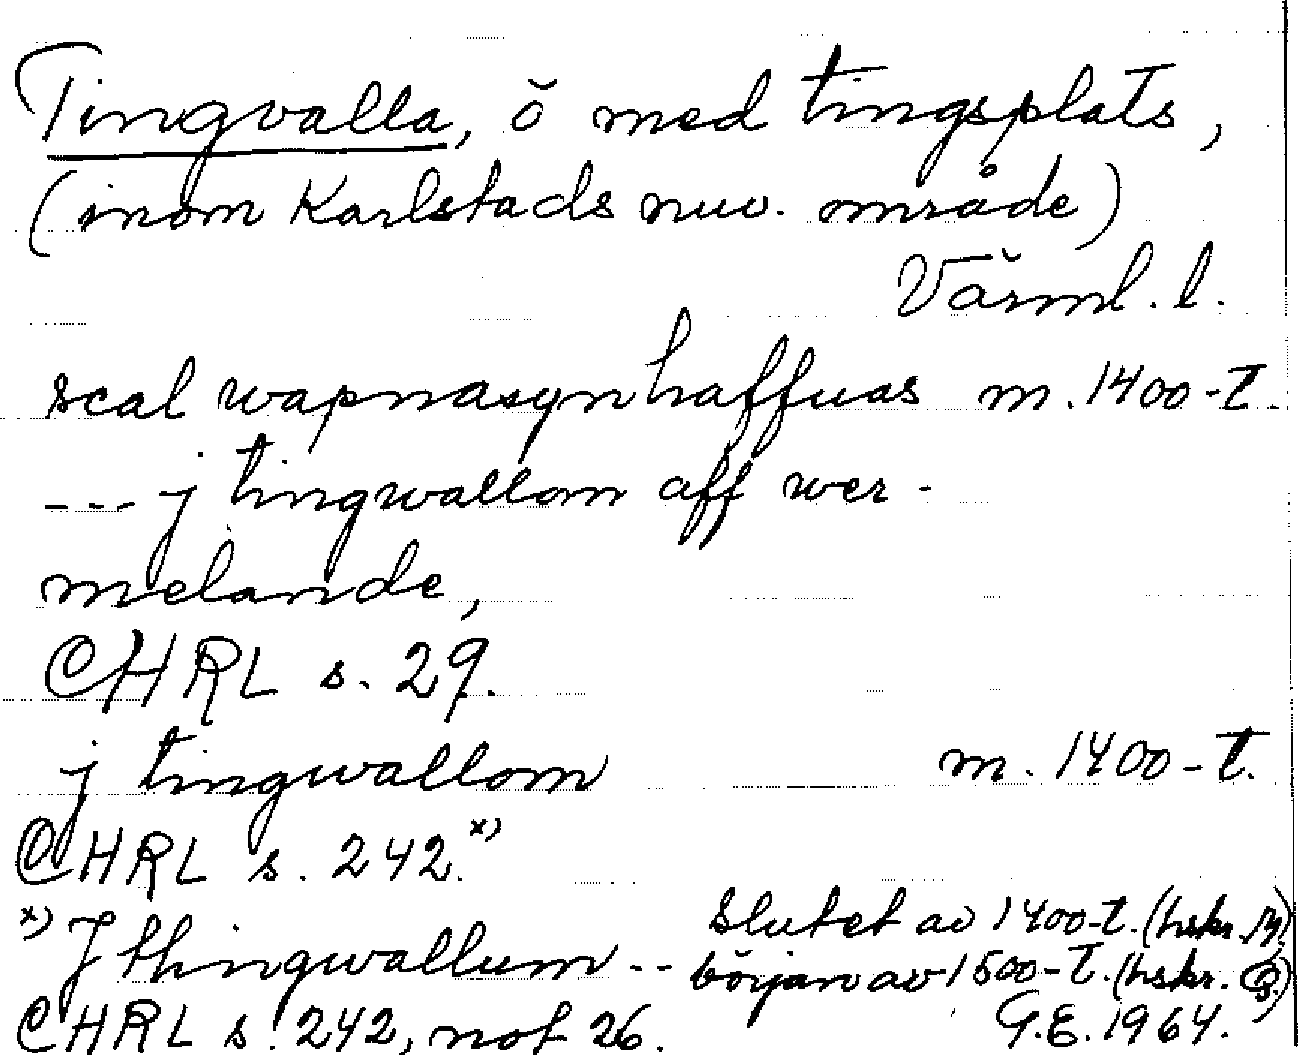 Tingvalla, ö med tingsplats,
(inom Karlstads nuv. område)
Värml. l.
scal wapnasyn haffuas m. 1400-t.
--- j tingwallom aff wer-
melande,
CHRL s. 29.
j tingwallom m. 1400-t.
CHRL s. 242.x)
x) J thingwallum -- slutet av 1400-t. (hskr.
början av 1500-t. (hskr.
CHRL s. 242, not 26. G.E. 1964.